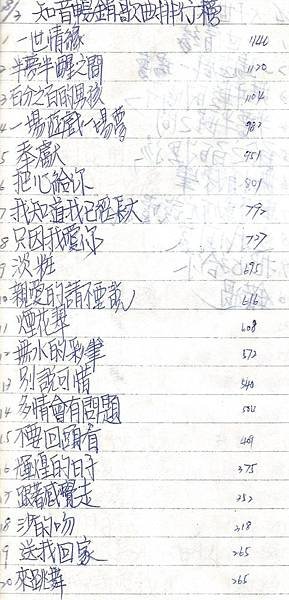 知音暢銷歌曲排行榜
1 一世情緣 1140
2 半夢半醒之間 1120
3 百分之百的男孩 1104
4 一場遊戲一場夢 982
5 奉獻 951
6 把心給你 801
7 我知道我已經長大 792
8 只因我愛你 737
9 淡粧 695
10 親愛的請不要說 616
11 煙花 608
12 無水的彩筆 572
13 別說可惜 540
14 多情會有問題 504
15 不要回頭看 461
16 的日子 375
17 跟著感覺走 352
18 沙的吻 318
19 送我回家 265
20 來跳舞 265